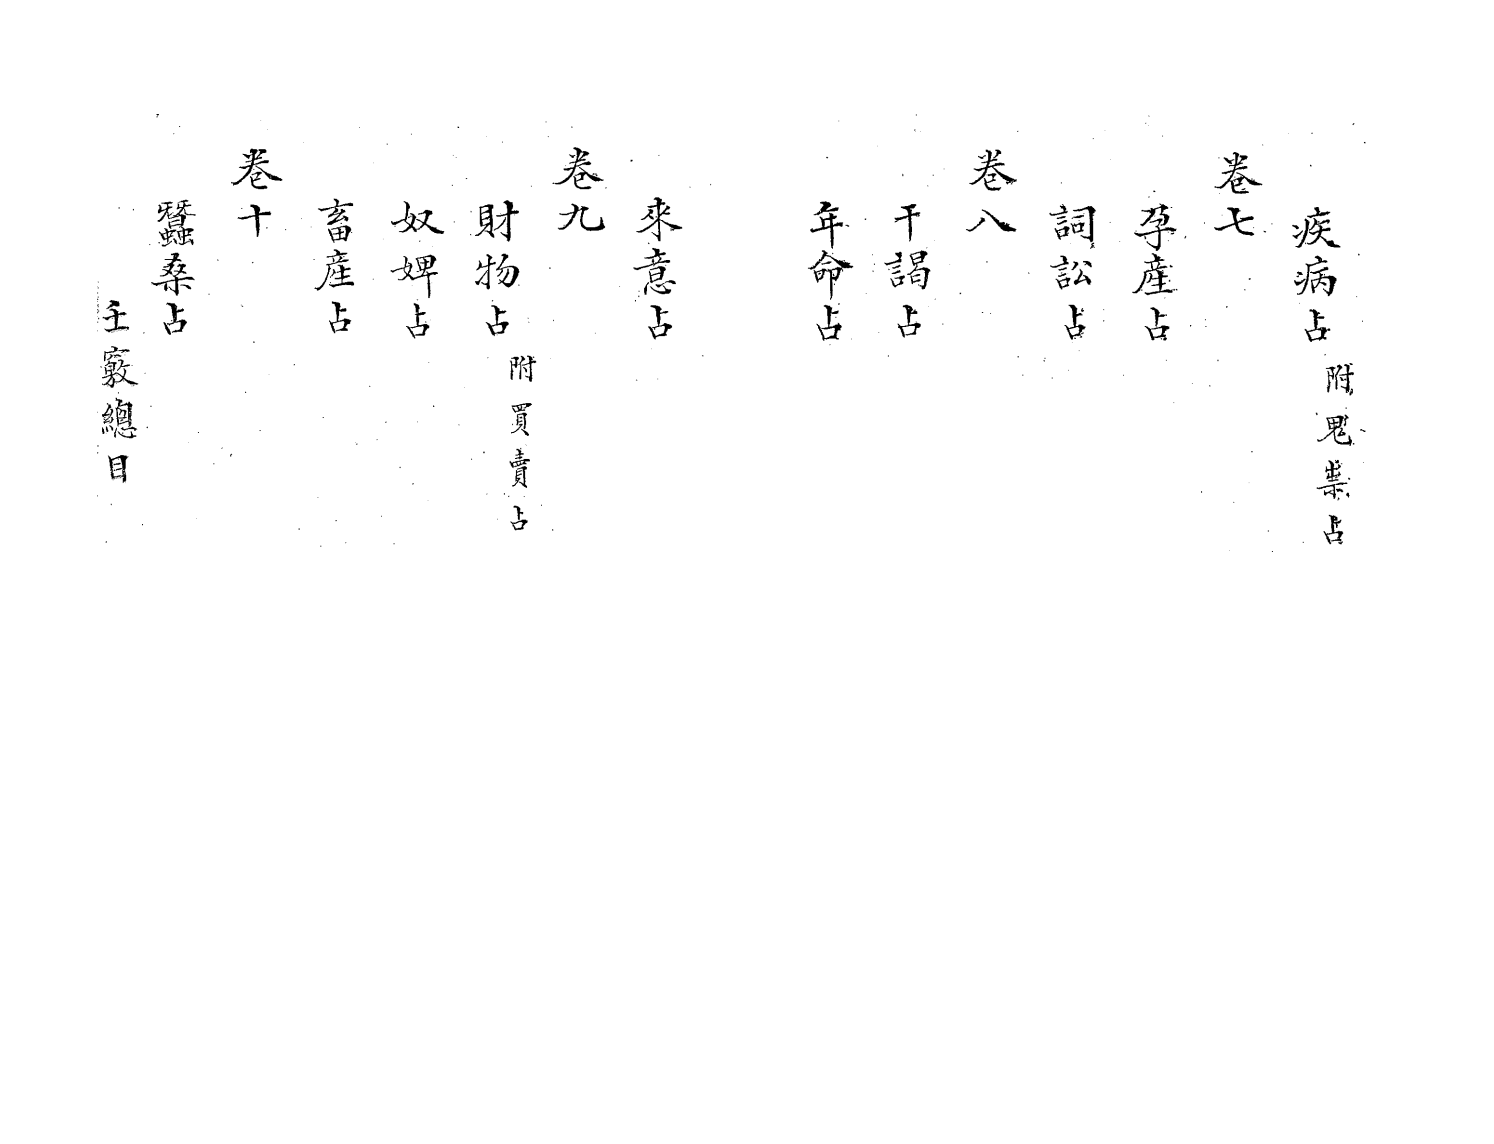 疾病占 附鬼祟占
卷七
孕產占
詞訟占
卷八
干謁占
年命占
來意占
卷九
財物占 附買賣占
奴婢占
畜產占
卷十
蠶桑占
壬竅總目